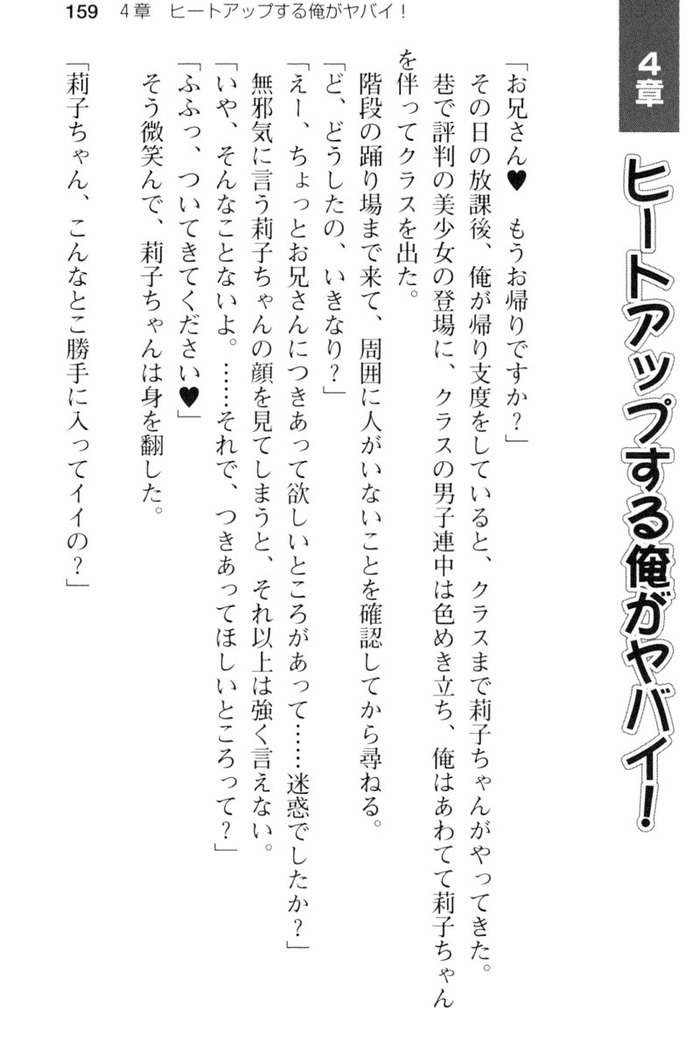 159　4章　ヒートアップする俺がヤバイ！
4章
ヒートアップする俺がヤバイ！
「お兄さん♥　もうお帰りですか？」
その日の放課後、俺が帰り支度をしていると、クラスまで莉子ちゃんがやってきた。
巷で評判の美少女の登場に、クラスの男子連中は色めき立ち、俺はあわてて莉子ちゃん
を伴ってクラスを出た。
階段の踊り場まで来て、周囲に人がいないことを確認してから尋ねる。
「ど、どうしたの、いきなり？」
「えー、ちょっとお兄さんにつきあって欲しいところがあって……迷惑でしたか？」
無邪気に言う莉子ちゃんの顔を見てしまうと、それ以上は強く言えない。
「いや、そんなことないよ。……それで、つきあってほしいところって？」
「ふふっ、ついてきてください♥」
そう微笑んで、莉子ちゃんは身を翻した。
「莉子ちゃん、こんなとこ勝手に入ってイイの？」